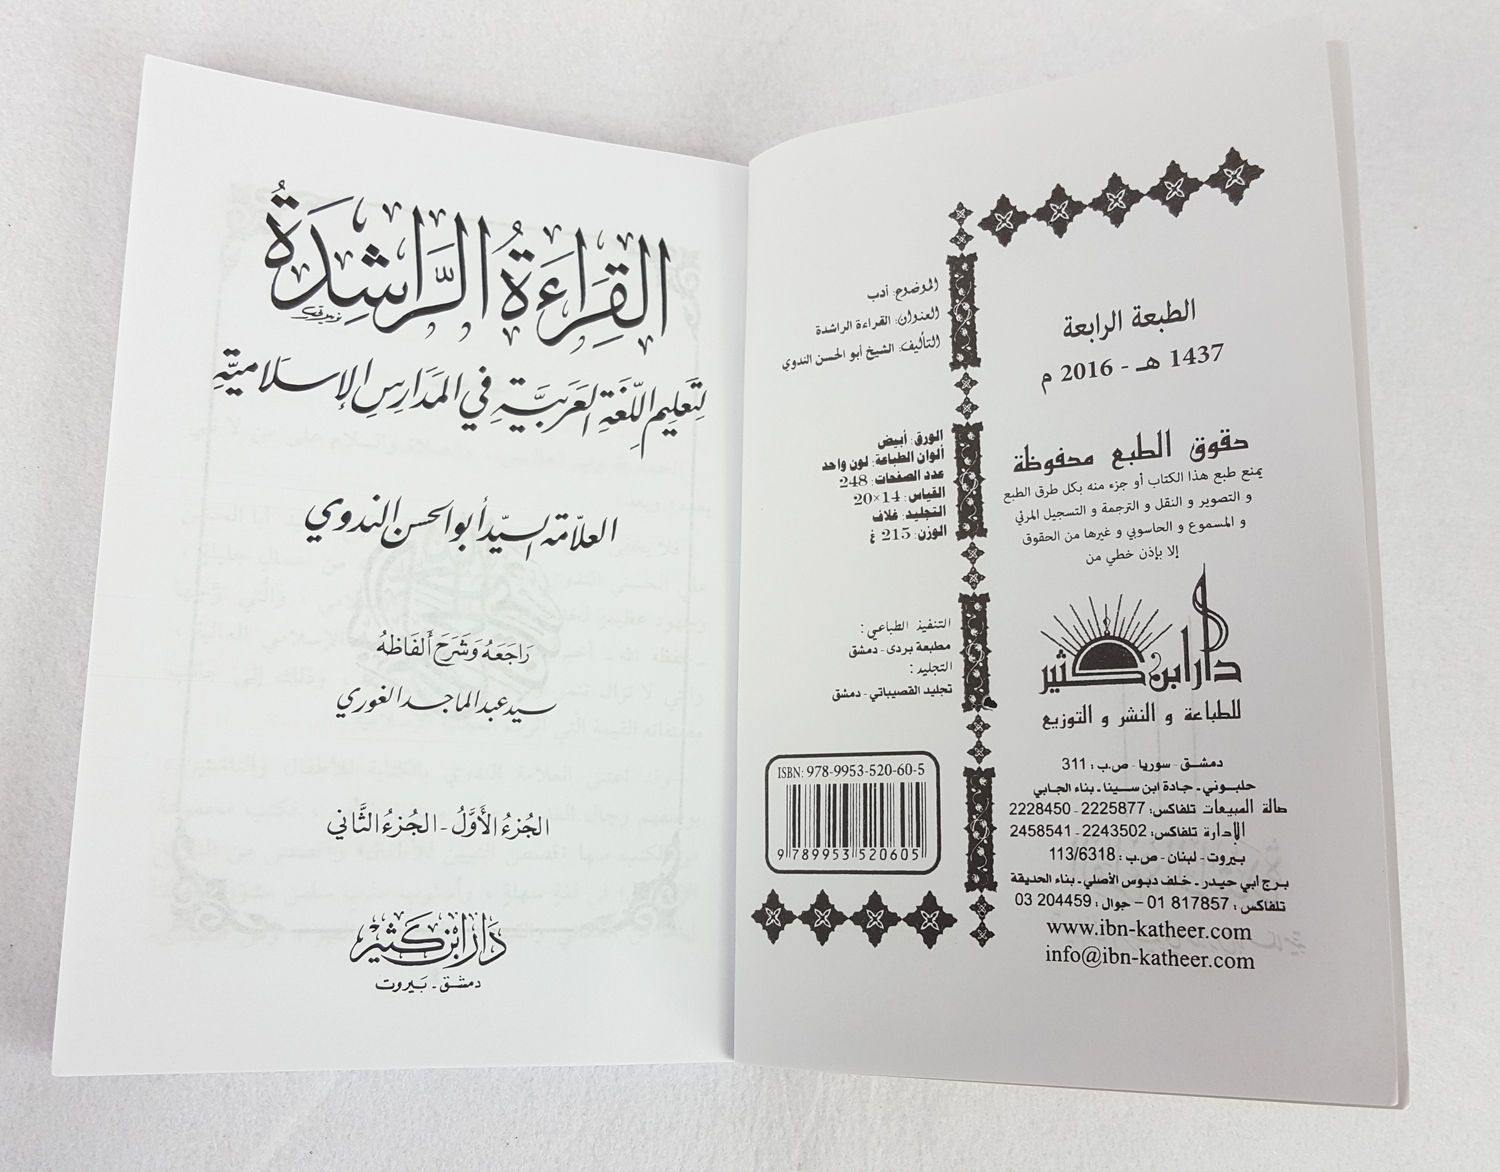 القِرَاءَةُ الرَّاشِدَةُ
لِتَعليم اللّغَةِ العَرَبيَّةِ في المَدَارِسِ الإسلَاميَّةِ
العلّامة السيّد أبو الحسن الندوي
رَاجَعَهُ وَشَرَحَ ألفَاظهُ
سيد عبد الماجد الغوري
الجُزءُ الأَوَّلُ - الجُزءُ الثَّاني
دَار ابْن كَثير
دمشق - بَيروت
الطبعة الرابعة
1437 هـ - 2016 م
حقوق الطبع محفوظة
يمنع طبع هذا الكتاب أو جزء منه بكل طرق الطبع
و التصوير و النقل و الترجمة و التسجيل المرئي
و المسموع و الحاسوبي و غيرها من الحقوق
إلا بإذن خطي من
دار ابن كثير
للطباعة و النشر و التوزيع
دمشق - سوريا - ص.ب : 311
حلبوني - جادة ابن سينا - بناء الجابي
صالة المبيعات تلفاكس: 2225877 - 2228450
الإدارة تلفاكس: 2243502 - 2458541
بيروت - لبنان - ص.ب : 113/6318
برج ابي حيدر - خلف دبوس الأصلي - بناء الحديقة
تلفاكس : 817857 01 – جوال : 204459 03
www.ibn-katheer.com
info@ibn-katheer.com
الموضوع: أدب
العنوان: القراءة الراشدة
التأليف: الشيخ أبو الحسن الندوي
الورق: أبيض
ألوان الطباعة: لون واحد
عدد الصفحات: 248
القياس: 14×20
التجليد: غلاف
الوزن: 215 غ
التنفيذ الطباعي :
مطبعة بردى - دمشق
التجليد :
تجليد القصيباتي - دمشق
ISBN: 978-9953-520-60-5
9 789953 520605